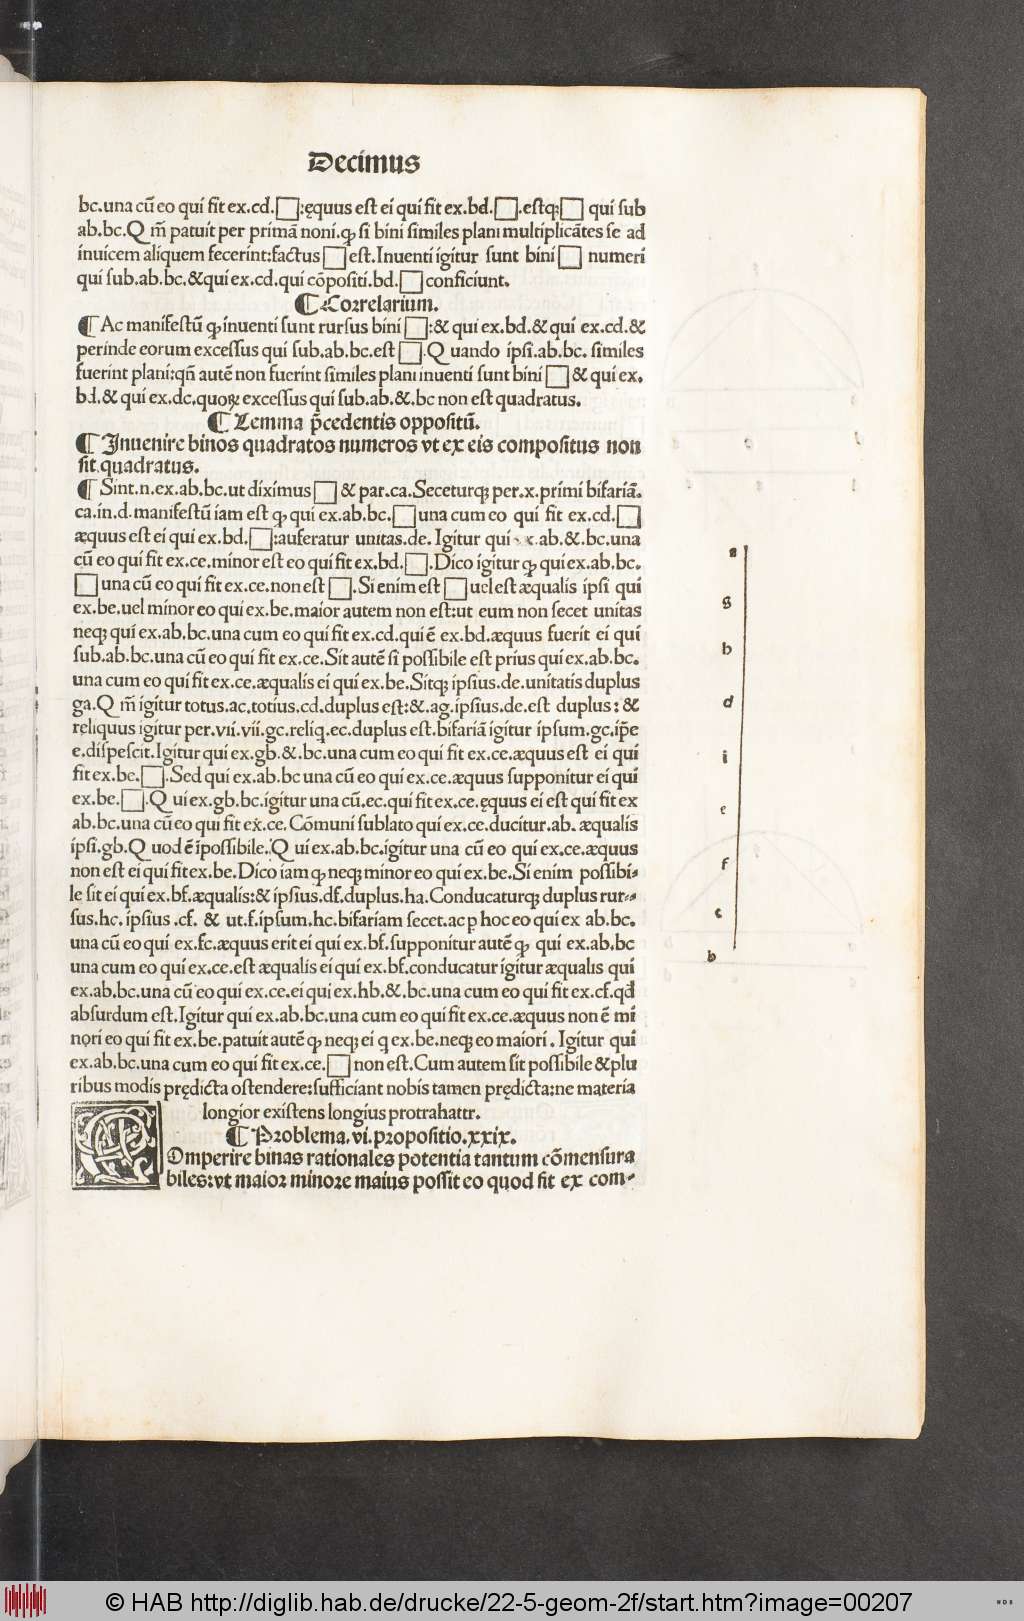 Decimus
bc.una cū eo qui fit ex.cd.□:ęquus est ei qui fit ex.bd.□.estqꝫ□ qui sub
ab.bc.Q m̄ patuit per primā noni.ꝙ si bini similes plani multiplicātes se ad
inuicem aliquem fecerint:factus □ est.Inuenti igitur sunt bini □ numeri
qui sub.ab.bc.&qui ex.cd.qui cōpositi.bd.□ conficiunt.
¶ Correlarium.
¶ Ac manifestū ꝙ inuenti sunt rursus bini □:& qui ex.bd.& qui ex.cd.&
perinde eorum excessus qui sub.ab.bc.est □.Q uando ipsi.ab.bc. similes
fuerint plani:qn̄ autē non fuerint similes plani inuenti sunt bini □ & qui ex.
bd.& qui ex.dc.quoꝝ excessus qui sub.ab.& bc non est quadratus.
¶ Lemma p̄cedentis oppositū.
¶ Inuenire binos quadratos numeros vt ex eis compositus non
sit quadratus.
¶ Sint.n.ex.ab.bc.ut diximus □ & par.ca.Seceturqꝫ per.x.primi bifariā.
ca.in.d.manifestū iam est ꝙ qui ex.ab.bc.□ una cum eo qui fit ex.cd.□
æquus est ei qui ex.bd.□:auferatur unitas.de. Igitur qui .ab.&.bc.una
cū eo qui fit ex.ce.minor est eo qui fit ex.bd.□.Dico igitur ꝙ qui ex.ab.bc.
□ una cū eo qui fit ex.ce.non est □.Si enim est □ uel est æqualis ipsi qui
ex.be.uel minor eo qui ex.be.maior autem non est:ut eum non secet unitas
neqꝫ qui ex.ab.bc.una cum eo qui fit ex.cd.qui ē ex.bd.æquus fuerit ei qui
sub.ab.bc.una cū eo qui fit ex.ce.Sit autē si possibile est prius qui ex.ab.bc.
una cum eo qui fit ex.ce.æqualis ei qui ex.be.Sitqꝫ ipsius.de.unitatis duplus
ga.Q m̄ igitur totus.ac.totius.cd.duplus est:&.ag.ipsius.de.est duplus: &
reliquus igitur per.vii.vii.gc.reliq.ec.duplus est.bifariā igitur ipsum.gc.ip̄e
e.dispescit.Igitur qui ex.gb.&.bc.una cum eo qui fit ex.ce.æquus est ei qui
fit ex.bc.□.Sed qui ex.ab.bc una cū eo qui ex.ce.æquus supponitur ei qui
ex.be.□.Q ui ex.gb.bc.igitur una cū.ec.qui fit ex.ce.ęquus ei est qui fit ex
ab.bc.una cū eo qui fit ex.ce.Cōmuni sublato qui ex.ce.ducitur.ab. æqualis
ipsi.gb.Q uod ē īpossibile.Q ui ex.ab.bc.igitur una cū eo qui ex.ce.æquus
non est ei qui fit ex.be.Dico iam ꝙ neqꝫ minor eo qui ex.be.Si enim possibi-
le sit ei qui ex.bf.æqualis:& ipsius.df.duplus.ha.Conducaturqꝫ duplus rur-
sus.hc. ipsius .cf. & ut.f.ipsum.hc.bifariam secet.ac ꝑ hoc eo qui ex ab.bc.
una cū eo qui ex.fc.æquus erit ei qui ex.bf.supponitur autē ꝙ qui ex.ab.bc
una cum eo qui ex.ce.est æqualis ei qui ex.bf.conducatur igitur æqualis qui
ex.ab.bc.una cū eo qui ex.ce.ei qui ex.hb.&.bc.una cum eo qui fit ex.cf.qd̄
absurdum est.Igitur qui ex.ab.bc.una cum eo qui fit ex.ce.æquus non ē mi
nori eo qui fit ex.be.patuit autē ꝙ neqꝫ ei q ex.be.neqꝫ eo maiori. Igitur qui
ex.ab.bc.una cum eo qui fit ex.ce.□ non est.Cum autem sit possibile &plu
ribus modis prędicta ostendere:sufficiant nobis tamen prędicta:ne materia
longior existens longius protrahattr.
¶ Problema.vi.propositio.xxix.
Omperire binas rationales potentia tantum cōmensura
biles:vt maior minore maius possit eo quod fit ex com-
a
g
h
d
i
e
f
c
b
© HAB http://diglib.hab.de/drucke/22-5-geom-2f/start.htm?image=00207